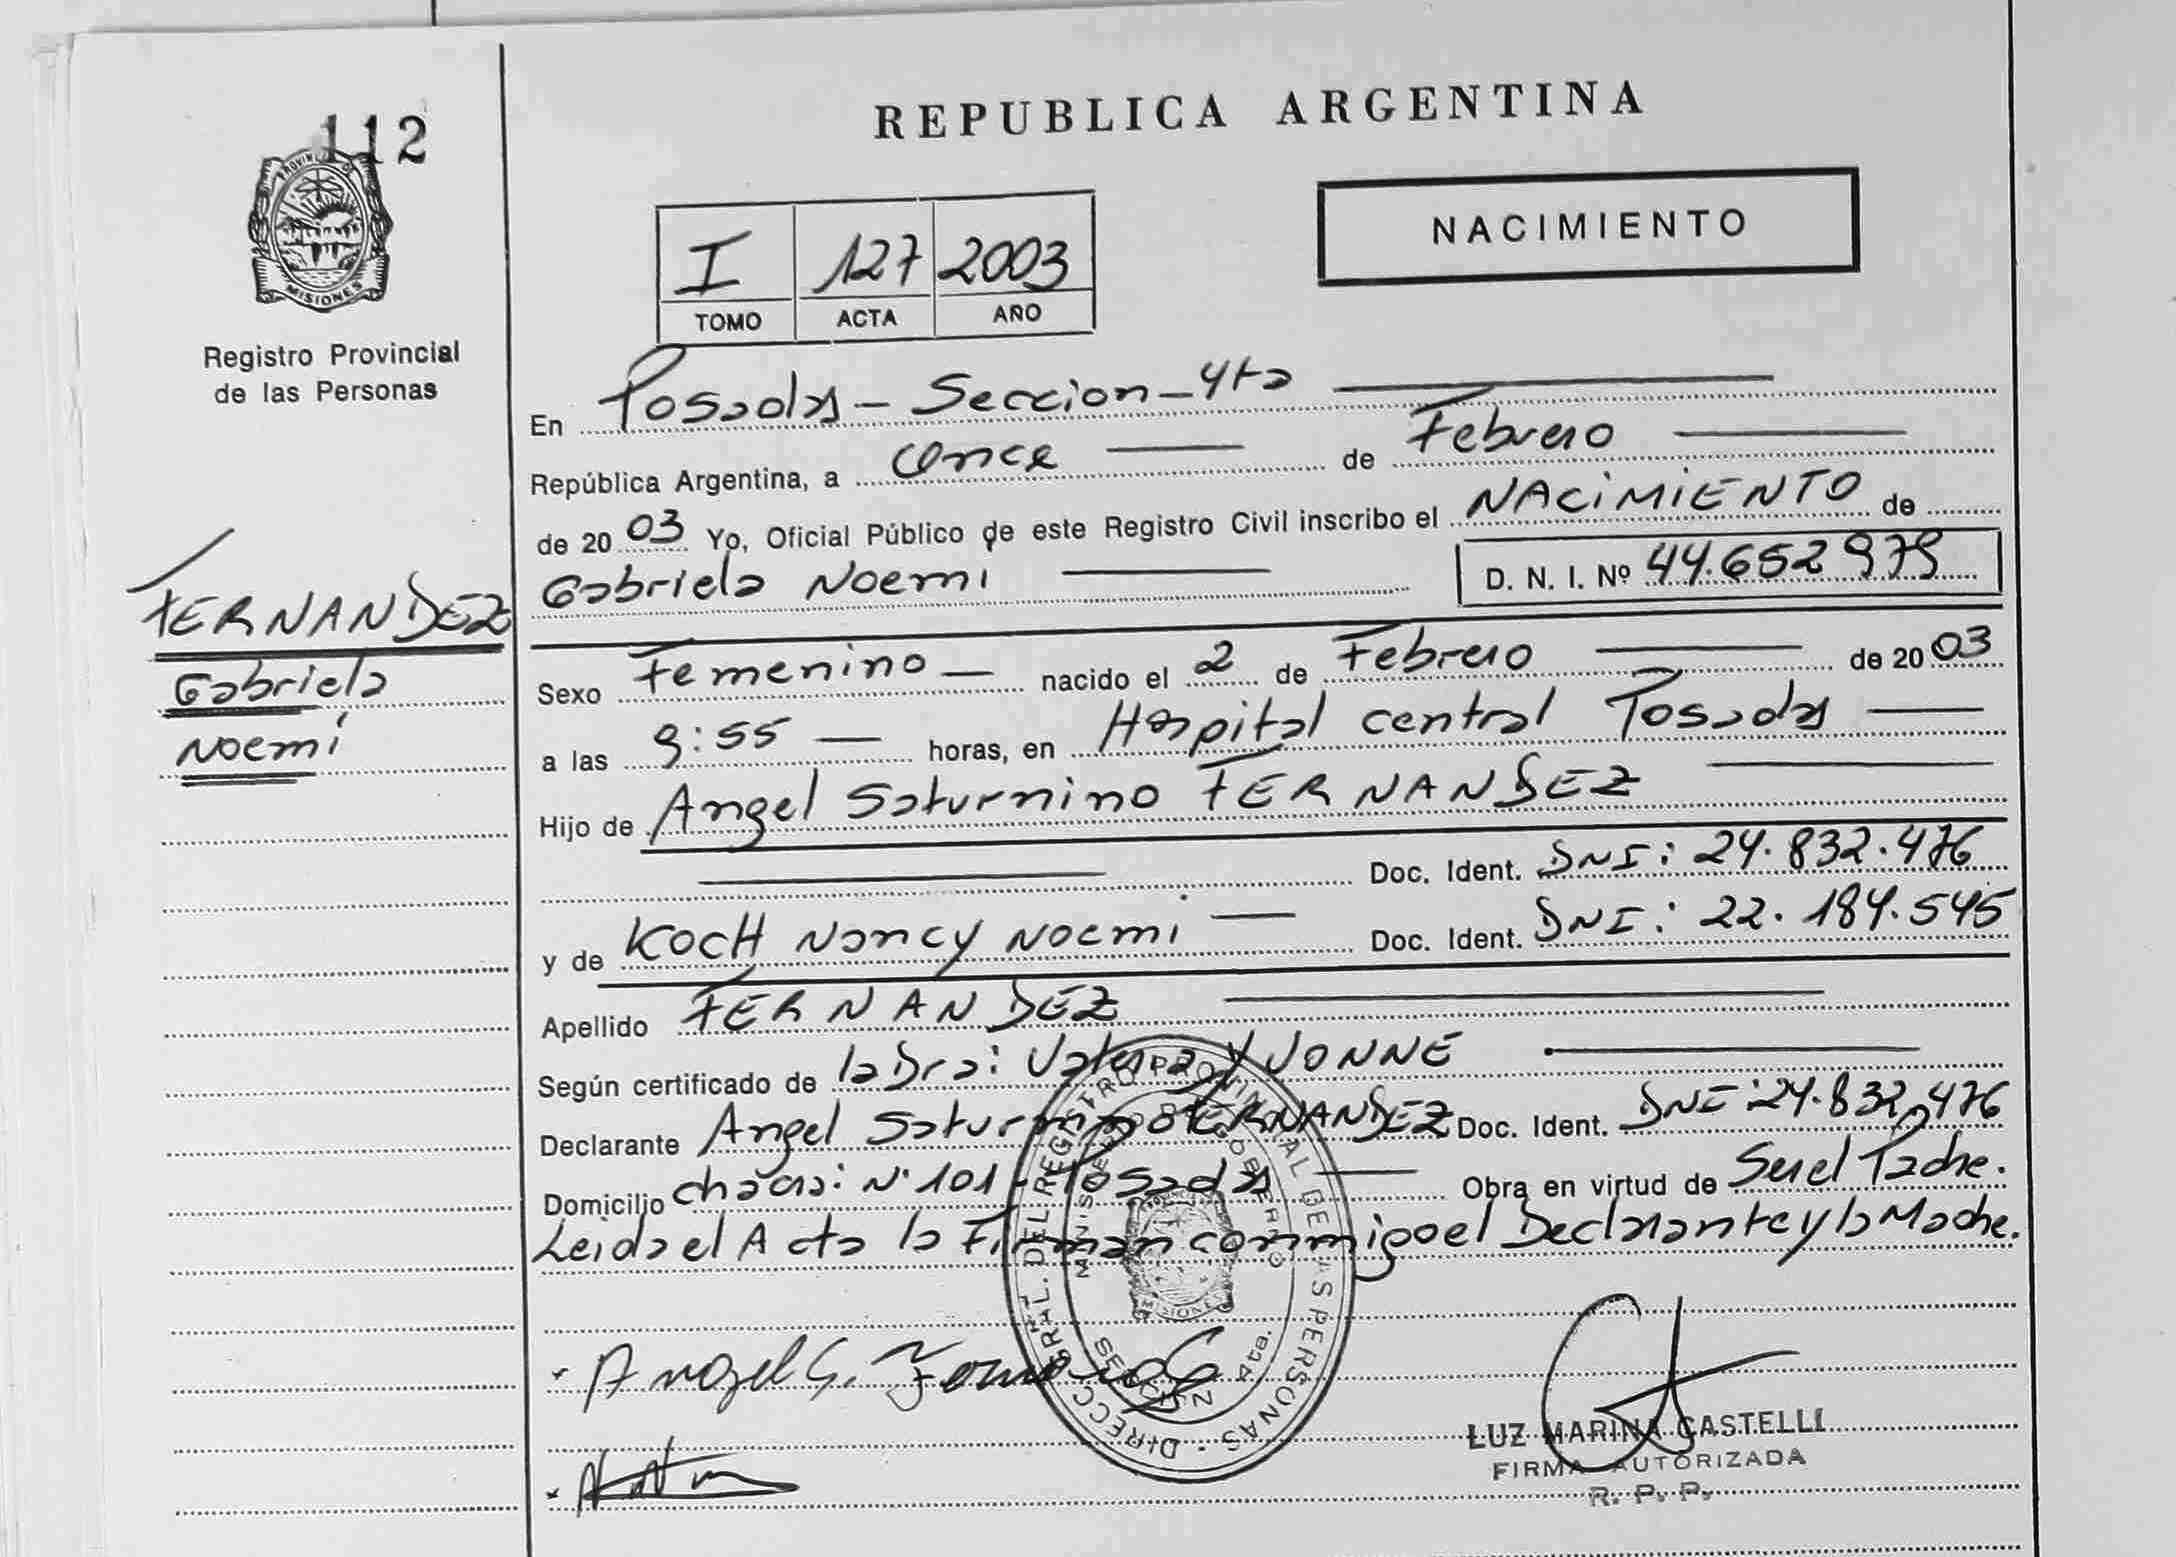 112
PROVINCIA DE
MISIONES
Registro Provincial
de las Personas
FERNANDEZ
Gabriela
Noemí
REPUBLICA ARGENTINA
NACIMIENTO
I 127 2003
TOMO ACTA AÑO
En Posadas - Seccion - 4ta
República Argentina, a once de Febrero
de 2003 Yo, Oficial Público de este Registro Civil inscribo el NACIMIENTO de
Gabriela Noemi D. N. I. Nº 44.652979
Sexo Femenino nacido el 2 de Febrero de 2003
a las 9:55 horas, en Hospital central Posadas
Hijo de Angel Saturnino FERNANDEZ
Doc. Ident. DNI: 24.832.476
y de KOCH Nancy Noemi Doc. Ident. DNI: 22.184.545
Apellido FERNANDEZ
Según certificado de la Dra: YVONNE
Declarante Angel Saturnino FERNANDEZ Doc. Ident. DNI: 24.832.476
Domicilio chacra: Nº 101 - Posadas Obra en virtud de Ser el Padre.
Leida el Acta la Firman conmigo el Declarante y la Madre.
DIRECC. GRAL. DEL REGISTRO PROVINCIAL DE LAS PERSONAS
MINISTERIO DE GOBIERNO
MISIONES
SECCION 4ta.
Angel S.
LUZ MARINA CASTELLI
FIRMA AUTORIZADA
R. P. P.